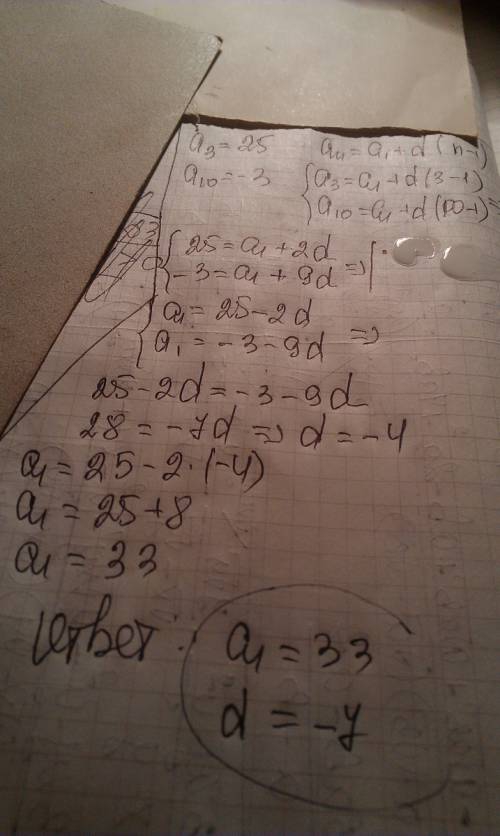 a₃ = 25   aₙ = a₁ + d(n-1)
a₁₀ = -3   { a₃ = a₁ + d(3-1)
a₁₀ = a₁ + d(10-1) ⇒
{ 25 = a₁ + 2d
-3 = a₁ + 9d ⇒
{ a₁ = 25 - 2d
a₁ = -3 - 9d ⇒
25 - 2d = -3 - 9d
28 = -7d ⇒ d = -4
a₁ = 25 - 2·(-4)
a₁ = 25 + 8
a₁ = 33
Ответ: a₁ = 33
d = -7